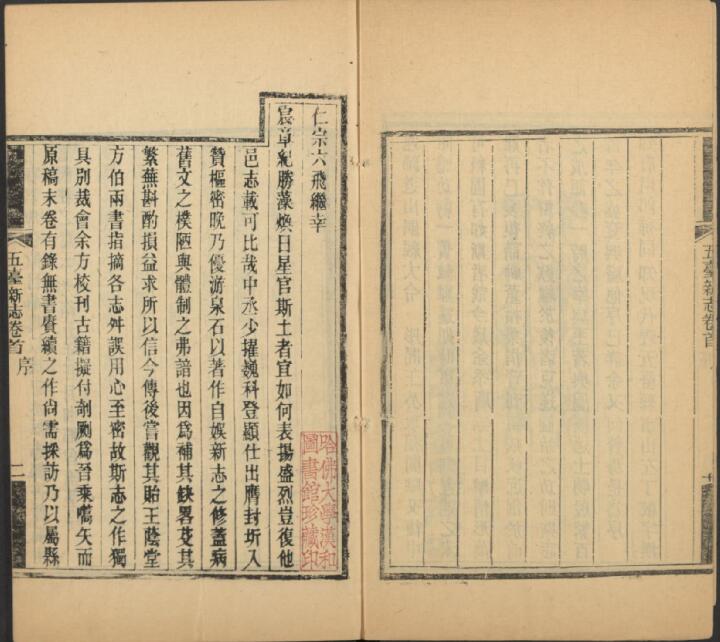 五臺新志卷首
仁宗六飛繼幸
宸章紀勝藻煥日星官斯土者宜如何表揚盛烈豈復他
邑志載可比哉中丞少擢巍科登顯仕出膺封圻入
贊樞密晚乃優游泉石以著作自娛新志之修蓋病
舊文之樸陋與體制之弗諳也因爲補其缺畧芟其
繁蕪斟酌損益求所以信今傳後嘗觀其貽王蔭堂
方伯兩書指摘各志舛誤用心至密故斯志之作獨
具別裁會余方校刊古籍擬付剞劂爲晉乘嚆矢而
原稿末卷有錄無書賡續之作尙需採訪乃以屬縣
五臺新志卷首 序 二
哈佛大學漢和
圖書館珍藏印